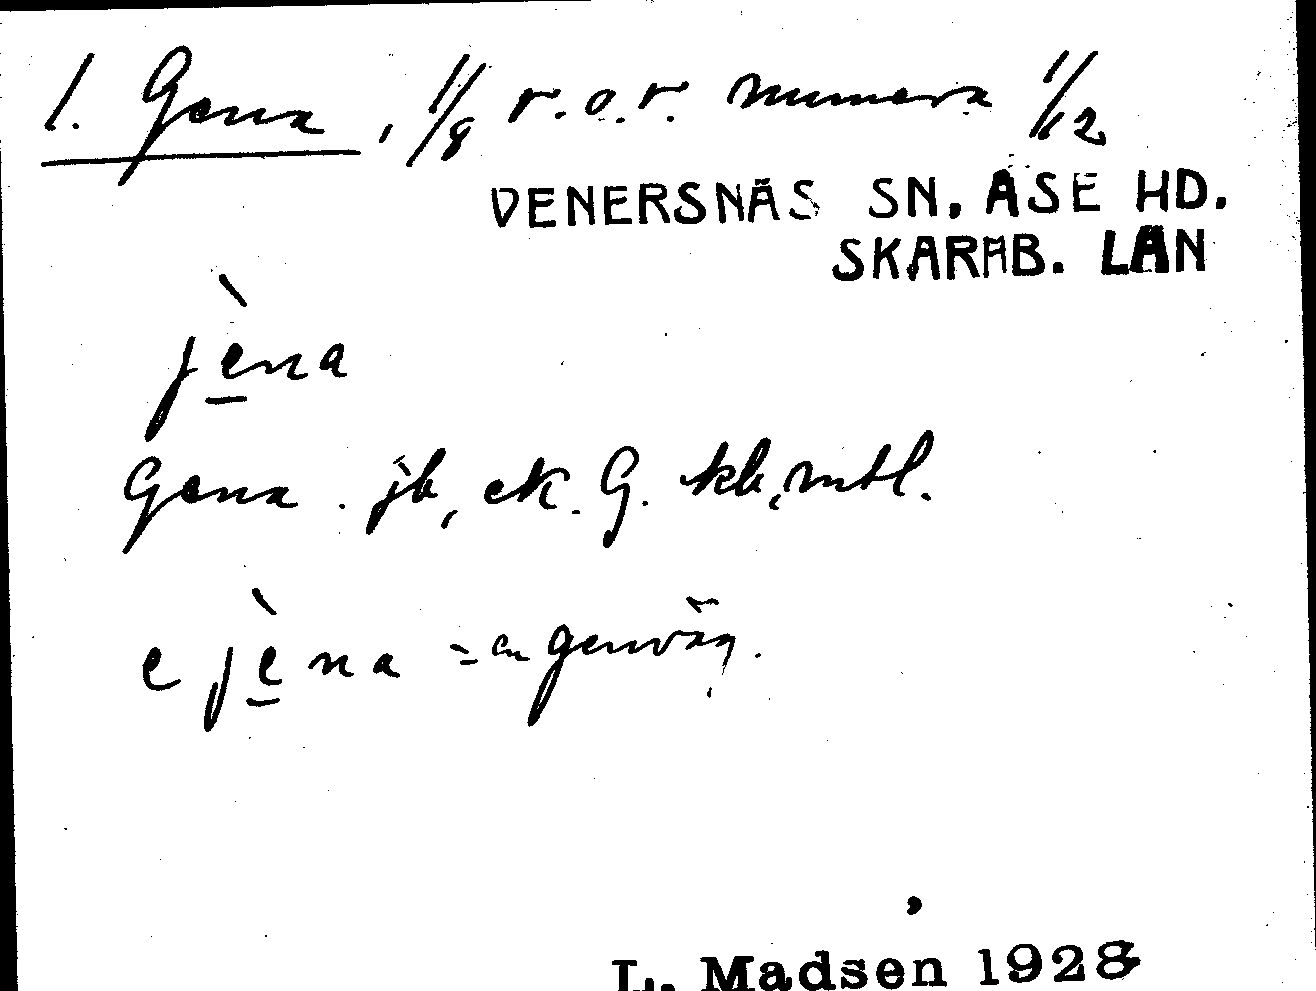 1. Gena, 1/8 r.o.r. numera 1/12
VENERSNÄS SN. ÅSE HD.
SKARAB. LÄN
jèna
Gena. jb, ek. G. kb, mtl.
e jèna = en genväg.
L. Madsen 1928